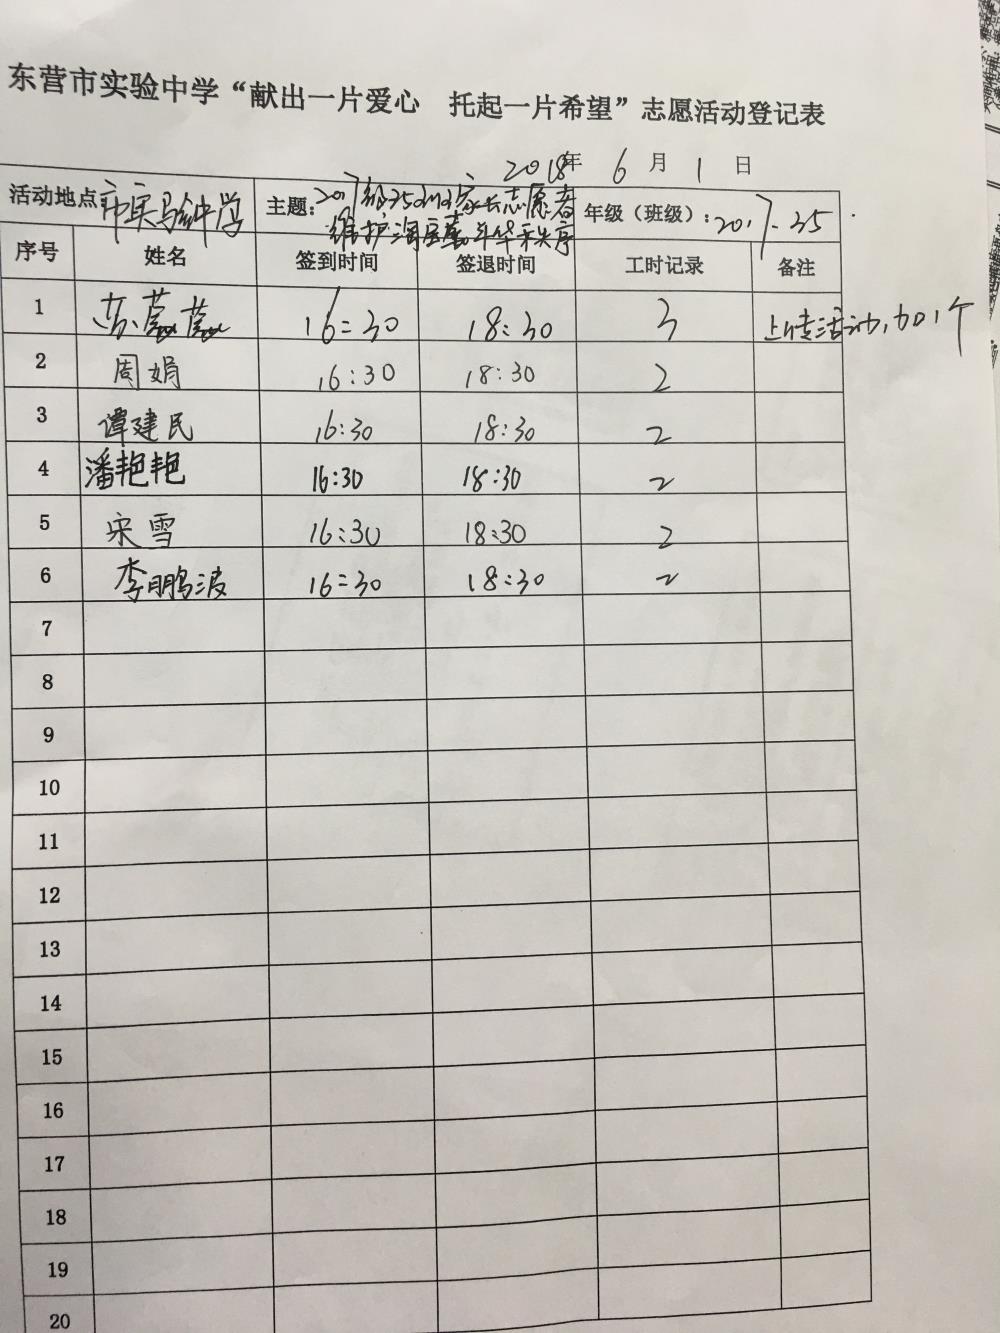 东营市实验中学“献出一片爱心 托起一片希望”志愿活动登记表
2018年 6 月 1 日
活动地点：市实验中学 主题：2017级35 家长志愿者 年级（班级）：2017.35
维护 秩序
序号 姓名 签到时间 签退时间 工时记录 备注
1 苏 16:30 18:30 3 上传活动,加1个
2 周娟 16:30 18:30 2
3 谭建民 16:30 18:30 2
4 潘艳艳 16:30 18:30 2
5 宋雪 16:30 18:30 2
6 李鹏波 16:30 18:30 2
7
8
9
10
11
12
13
14
15
16
17
18
19
20